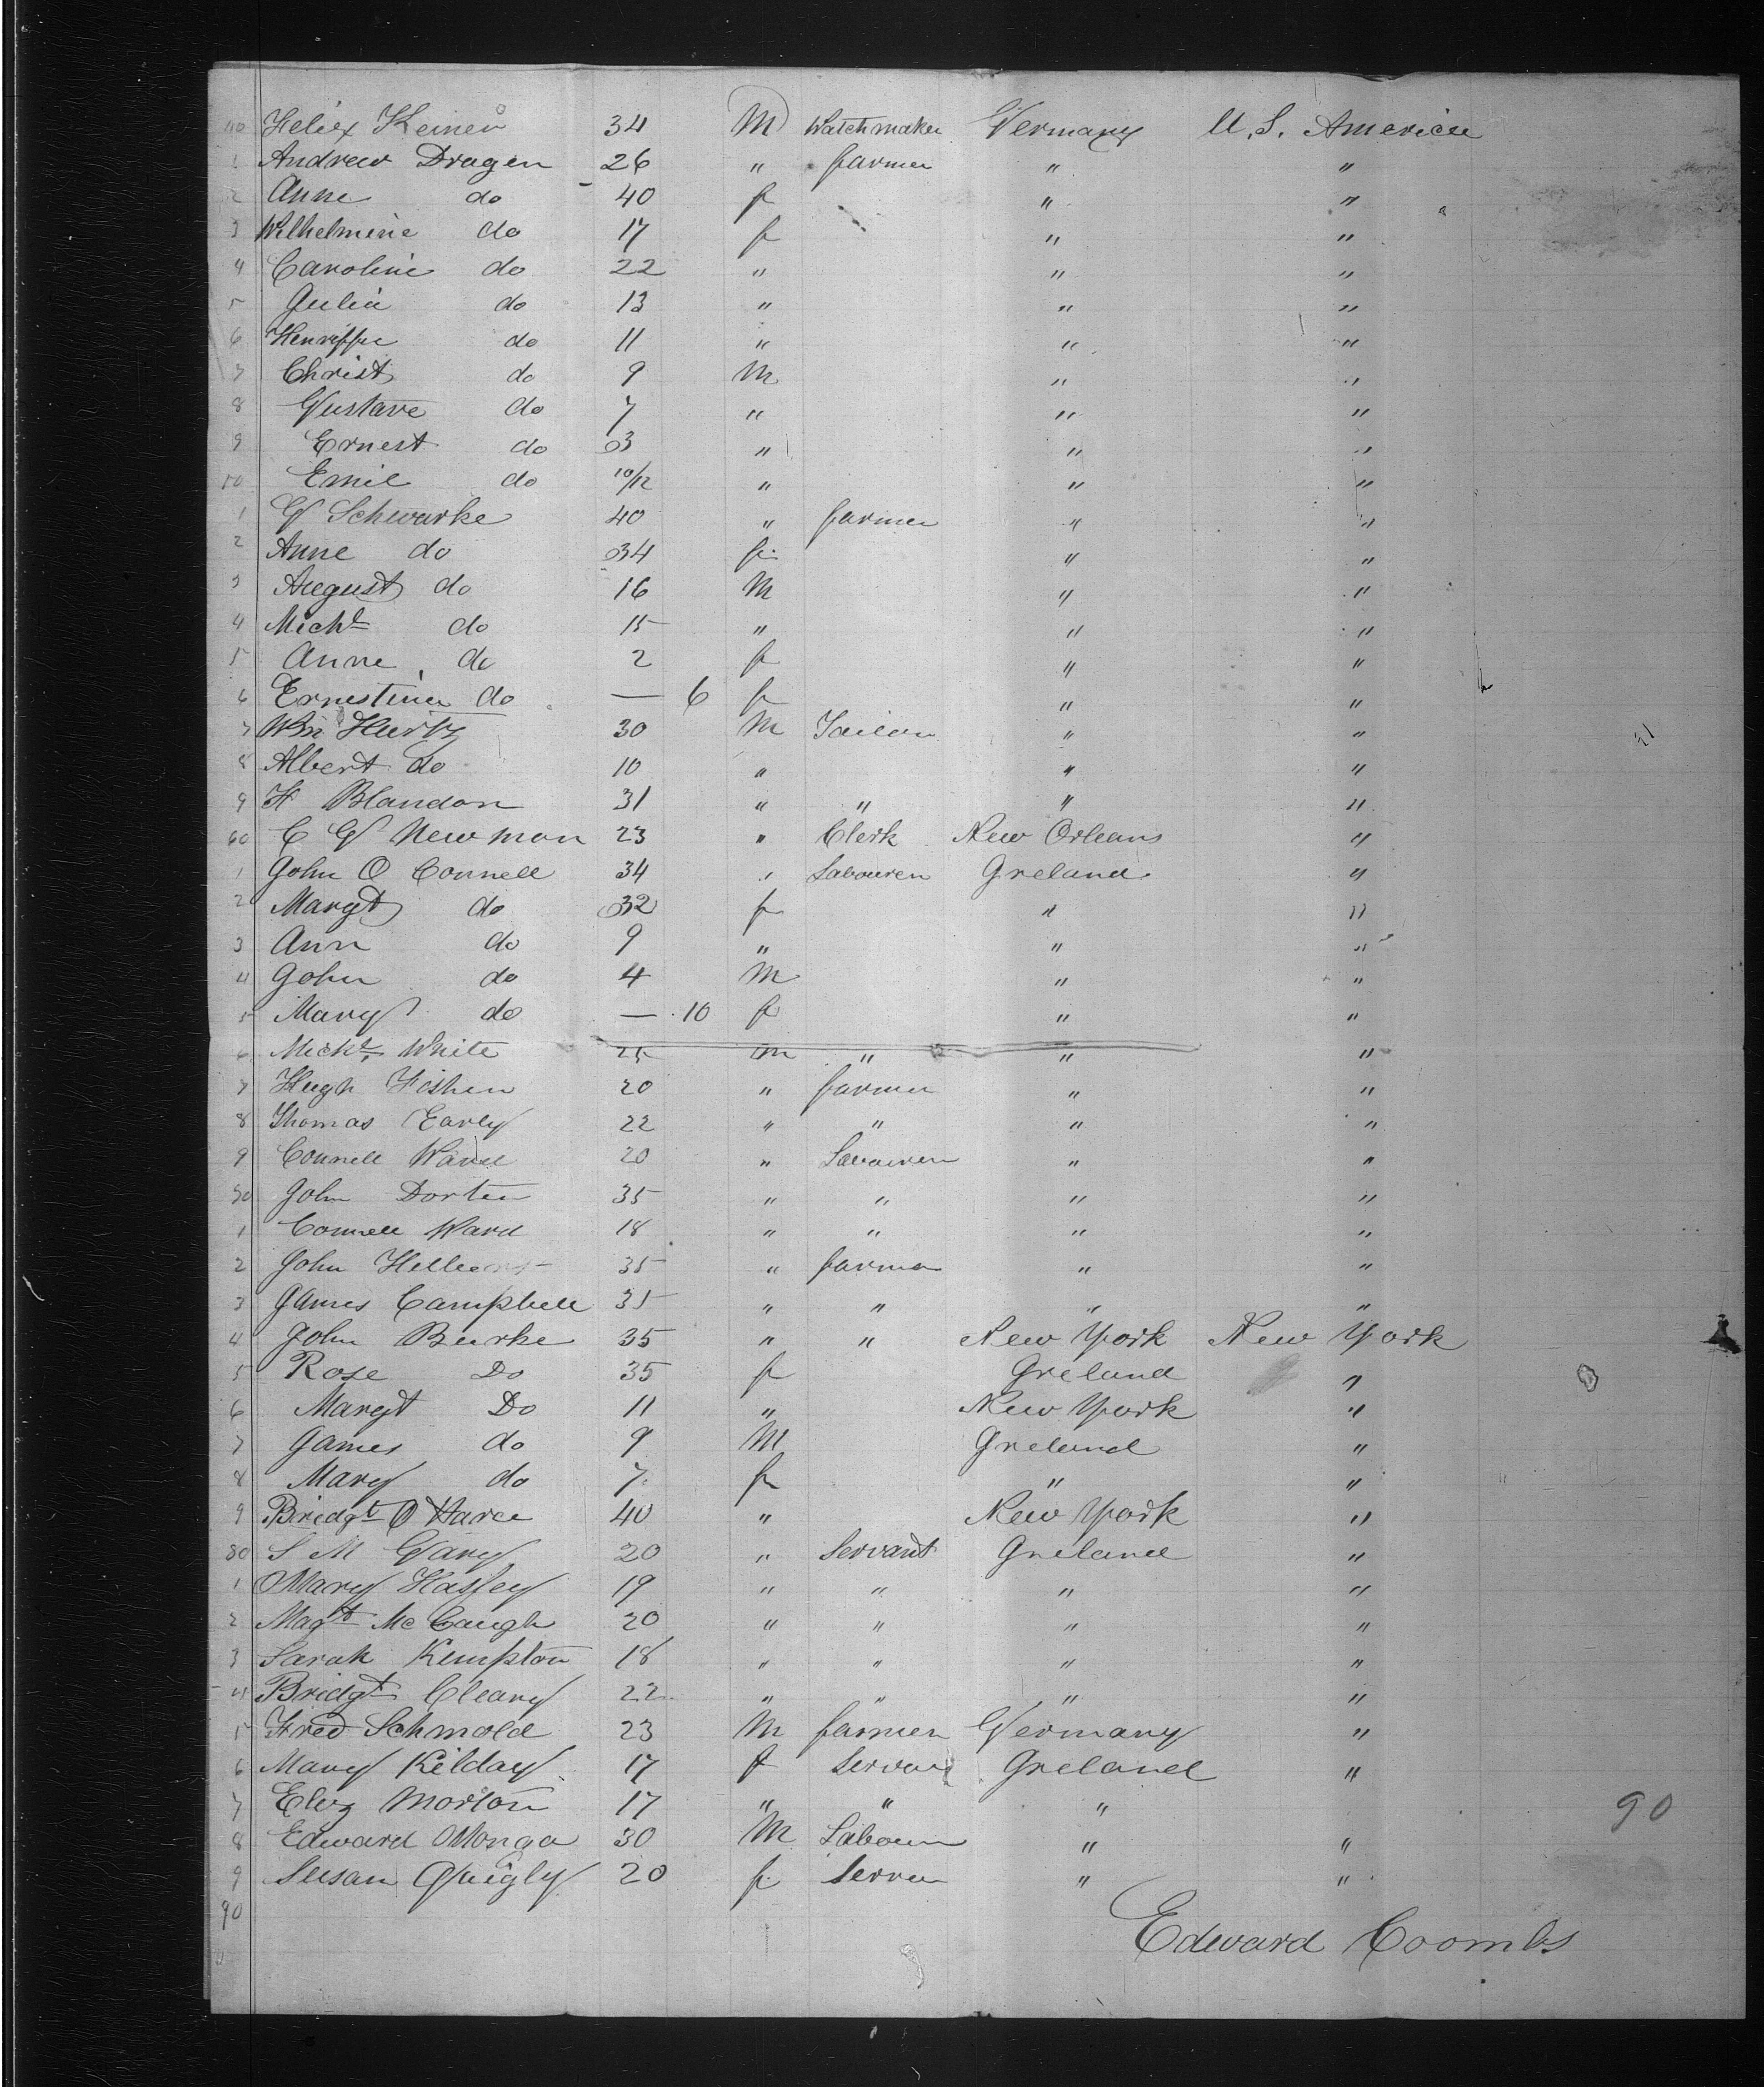 40 Helix Keiner 34 M Watchmaker Germany U.S. America
1 Andrew Dragen 26 " farmer " "
2 Anne do 40 f " "
3 Wilhelmine do 17 f " "
4 Caroline do 22 " " "
5 Julia do 13 " " "
6 do 11 " " "
7 Christ do 9 M " "
8 Gustave do 7 " " "
9 Ernest do 3 " " "
50 Emil do 10/12 " " "
1 G Schwarke 40 " farmer " "
2 Anne do 34 f " "
3 August do 16 M " "
4 Michl do 15 " " "
5 Anne do 2 f " "
6 Ernestine do — 6 f " "
7 Wm Hurtz 30 M Tailor " "
8 Albert do 10 " " "
9 H Blandon 31 " " " "
60 C G Newman 23 " Clerk New Orleans "
1 John O Connell 34 " Labourer Ireland "
2 Margt do 32 f " "
3 Ann do 9 " " "
4 John do 4 M " "
5 Mary do — 10 f " "
6 Michl White 25 M " " "
7 Hugh Fisher 20 " farmer " "
8 Thomas Early 22 " " " "
9 Connell Ward 20 " Labourer " "
70 John Dorten 35 " " " "
1 Connell Ward 18 " " " "
2 John 35 " farmer " "
3 James Campbell 35 " " " "
4 John Burke 35 " " New York New York
5 Rose Do 35 f Ireland "
6 Margt Do 11 " New York "
7 James do 9 M Ireland "
8 Mary do 7 f " "
9 Bridgt O Hare 40 " New York "
80 S M Gary 20 " Servant Ireland "
1 Mary Hasfey 19 " " " "
2 Magt Mc Caugh 20 " " " "
3 Sarah Kempton 18 " " " "
4 Bridgt Cleary 22 " " " "
5 Fred Schmold 23 M farmer Germany "
6 Mary Kilday 17 f Servan Ireland "
7 Eliz Morton 17 " " "
90
8 Edward Monga 30 M Labour " "
9 Susan Quigly 20 f Serven " "
90
Edward Coombs